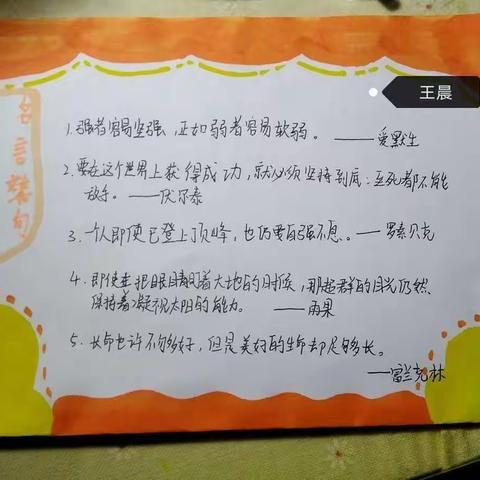 王晨
名言警句
1.强者容易坚强，正如弱者容易软弱。——爱默生
2.要在这个世界上获得成功，就必须坚持到底：至死都不能
放手。——伏尔泰
3、一个人即使已登上顶峰，也仍要自强不息。——罗素贝克
4、即使在把眼睛盯着大地的时候，那超群的目光仍然
保持着凝视太阳的能力。——雨果
5、长命也许不够好，但是美好的生命却足够长。
——富兰克林